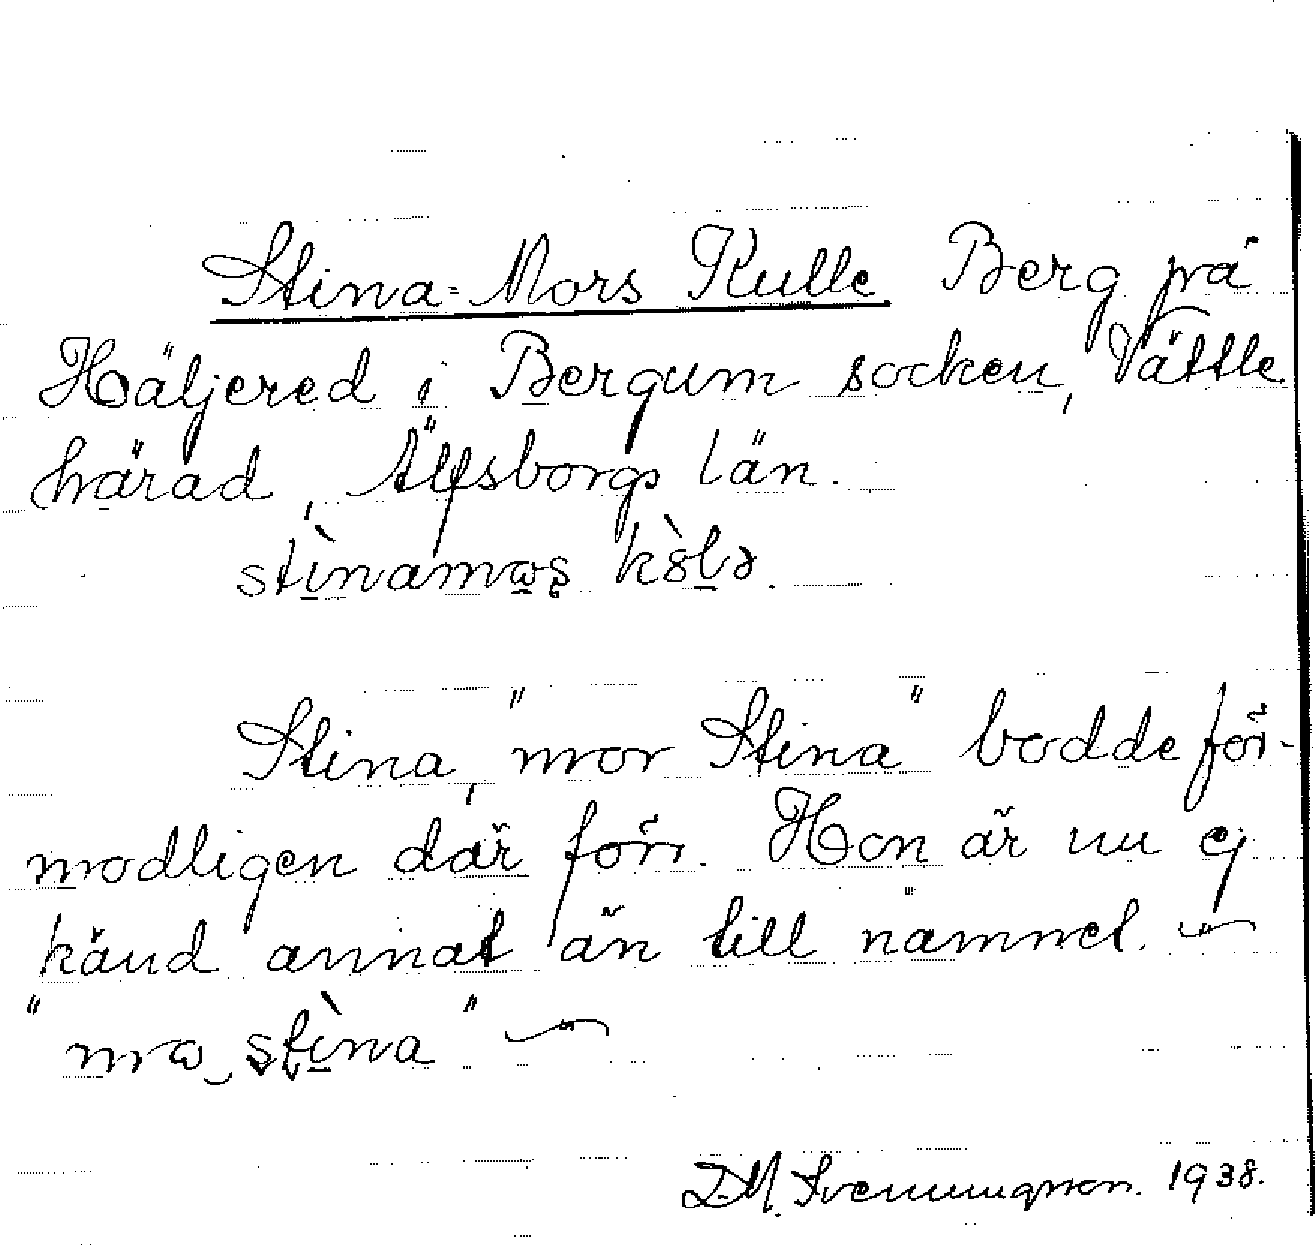 Stina-Mors Kulle Berg på
Häljered i Bergum socken, Vättle
härad, Älfsborgs län.
stìnamɷʂ kò̤lə.
Stina, "mor Stina" bodde för-
modligen där förr. Hon är nu ej
känd annat än till namnet. —
"mɷ‿ʂt̀ìna" —
D.M. Svenningson. 1938.